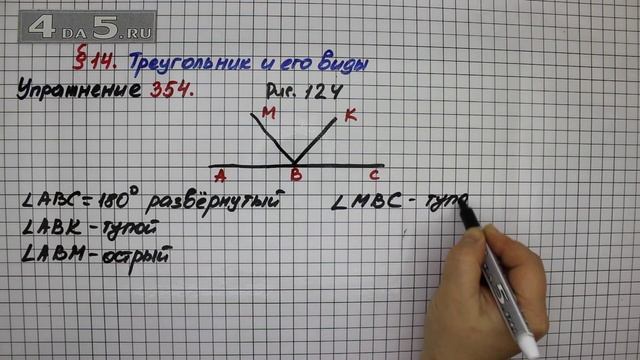 4 DA 5.RU
§14. Треугольник и его виды
Упражнение 354. Рис. 124
M K
A B C
∠ABC = 180° развёрнутый ∠MBC – тупо
∠ABK – тупой
∠ABM – острый